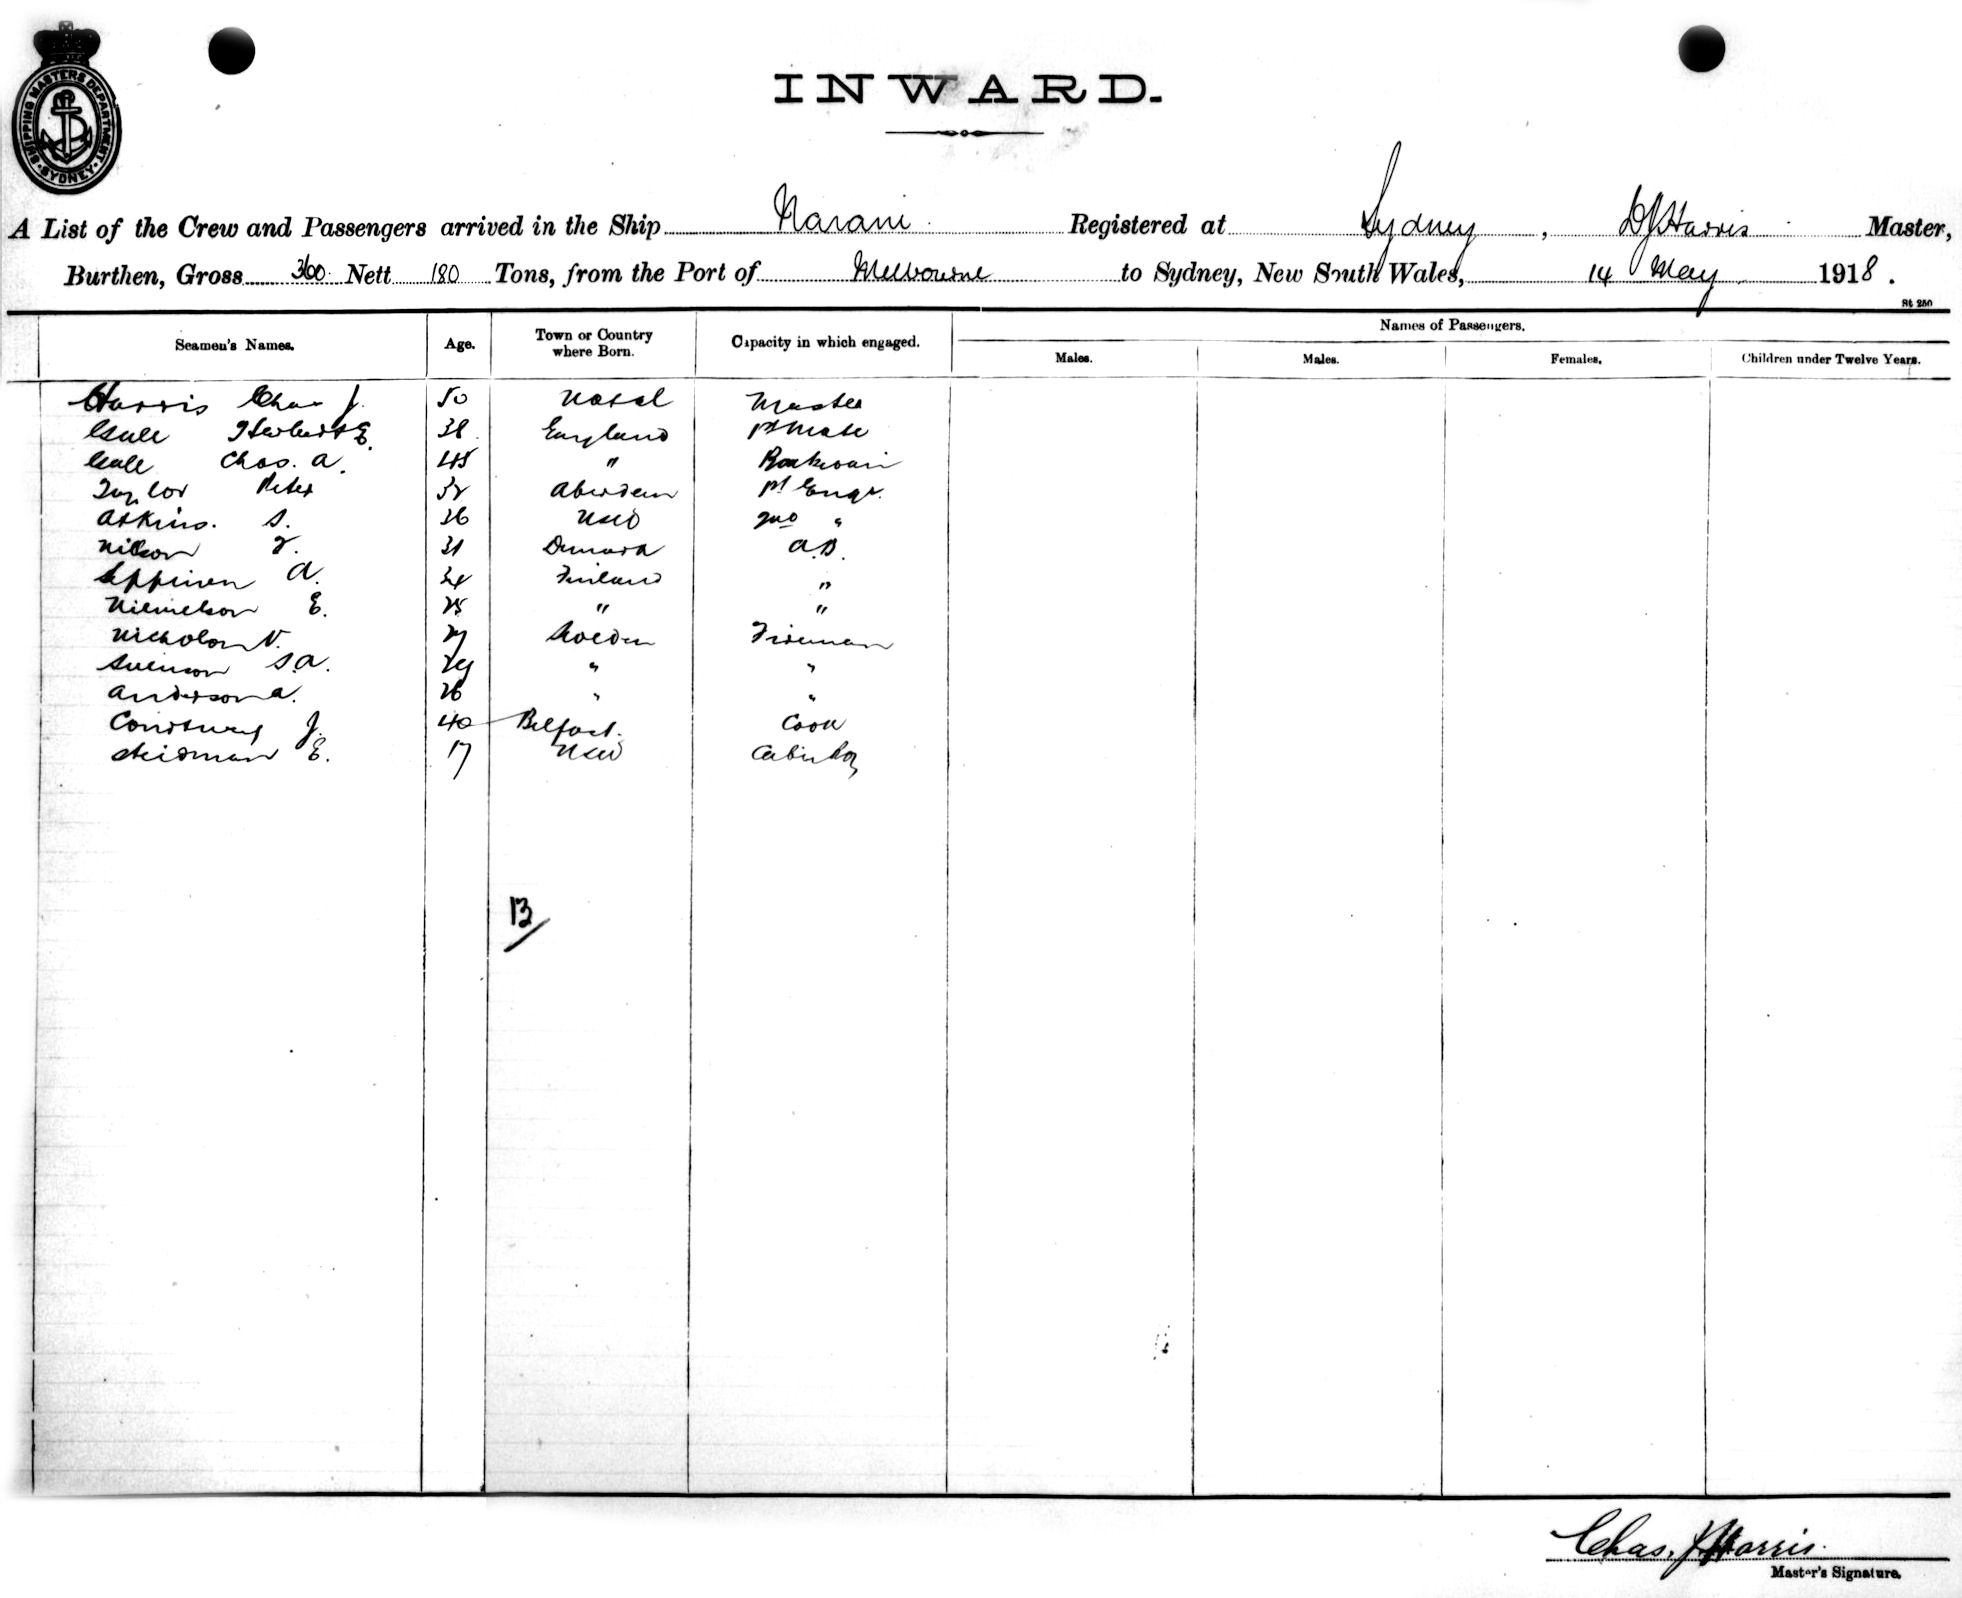 SHIPPING MASTERS DEPARTMENT. SYDNEY
INWARD.
A List of the Crew and Passengers arrived in the Ship Narani Registered at Sydney, Harris Master,
Burthen, Gross 360 Nett 180 Tons, from the Port of Melbourne to Sydney, New South Wales, 14 May 1918.
St 250
Seamen's Names. Age. Town or Country where Born. Capacity in which engaged. Names of Passengers.
Males. Males. Females. Children under Twelve Years.
Harris Chas J. 50 Natal Master
Herbert E. 38 England 1st Mate
Chas. A. 45 "
Taylor Peter 32 Aberdeen 1st Engr.
Atkins. S. 36 NSW 2nd "
31 A.B.
A. Finland "
E. 25 " "
N. 27 Sweden Fireman
Svenson S.A. 29 " "
Anderson A. 26 " "
J. 40 Belfast. Cook
E. 17 NSW Cabin Boy
13/
Chas. J Harris.
Master's Signature.